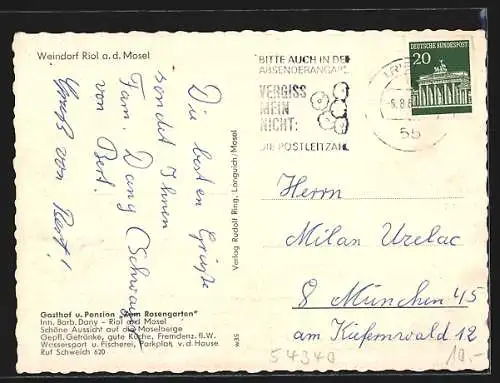 Weindorf Riol a. d. Mosel
Die besten Grüße
sendet Ihnen
Fam. Dany (Schwager
von Bert!
Gruß von Bert!
Gasthof u. Pension "Zum Rosengarten"
Inh. Barb. Dany - Riol bei Mosel
Schöne Aussicht auf die Moselberge
Gepfl. Getränke, gute Küche, Fremdenz. fl. W.
Wassersport u. Fischerei, Parkplatz v. d. Hause
Ruf Schweich 620
Verlag Rudolf Ring, Longuich/Mosel
BITTE AUCH IN DER
ABSENDERANGABE
VERGISS
MEIN
NICHT:
DIE POSTLEITZAHL
55
DEUTSCHE BUNDESPOST
20
Herrn
Milan Urelac
8 München 45
am Kiefernwald 12
54340
10,-